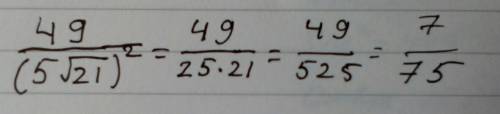 49/(5√21)² = 49/25·21 = 49/525 = 7/75